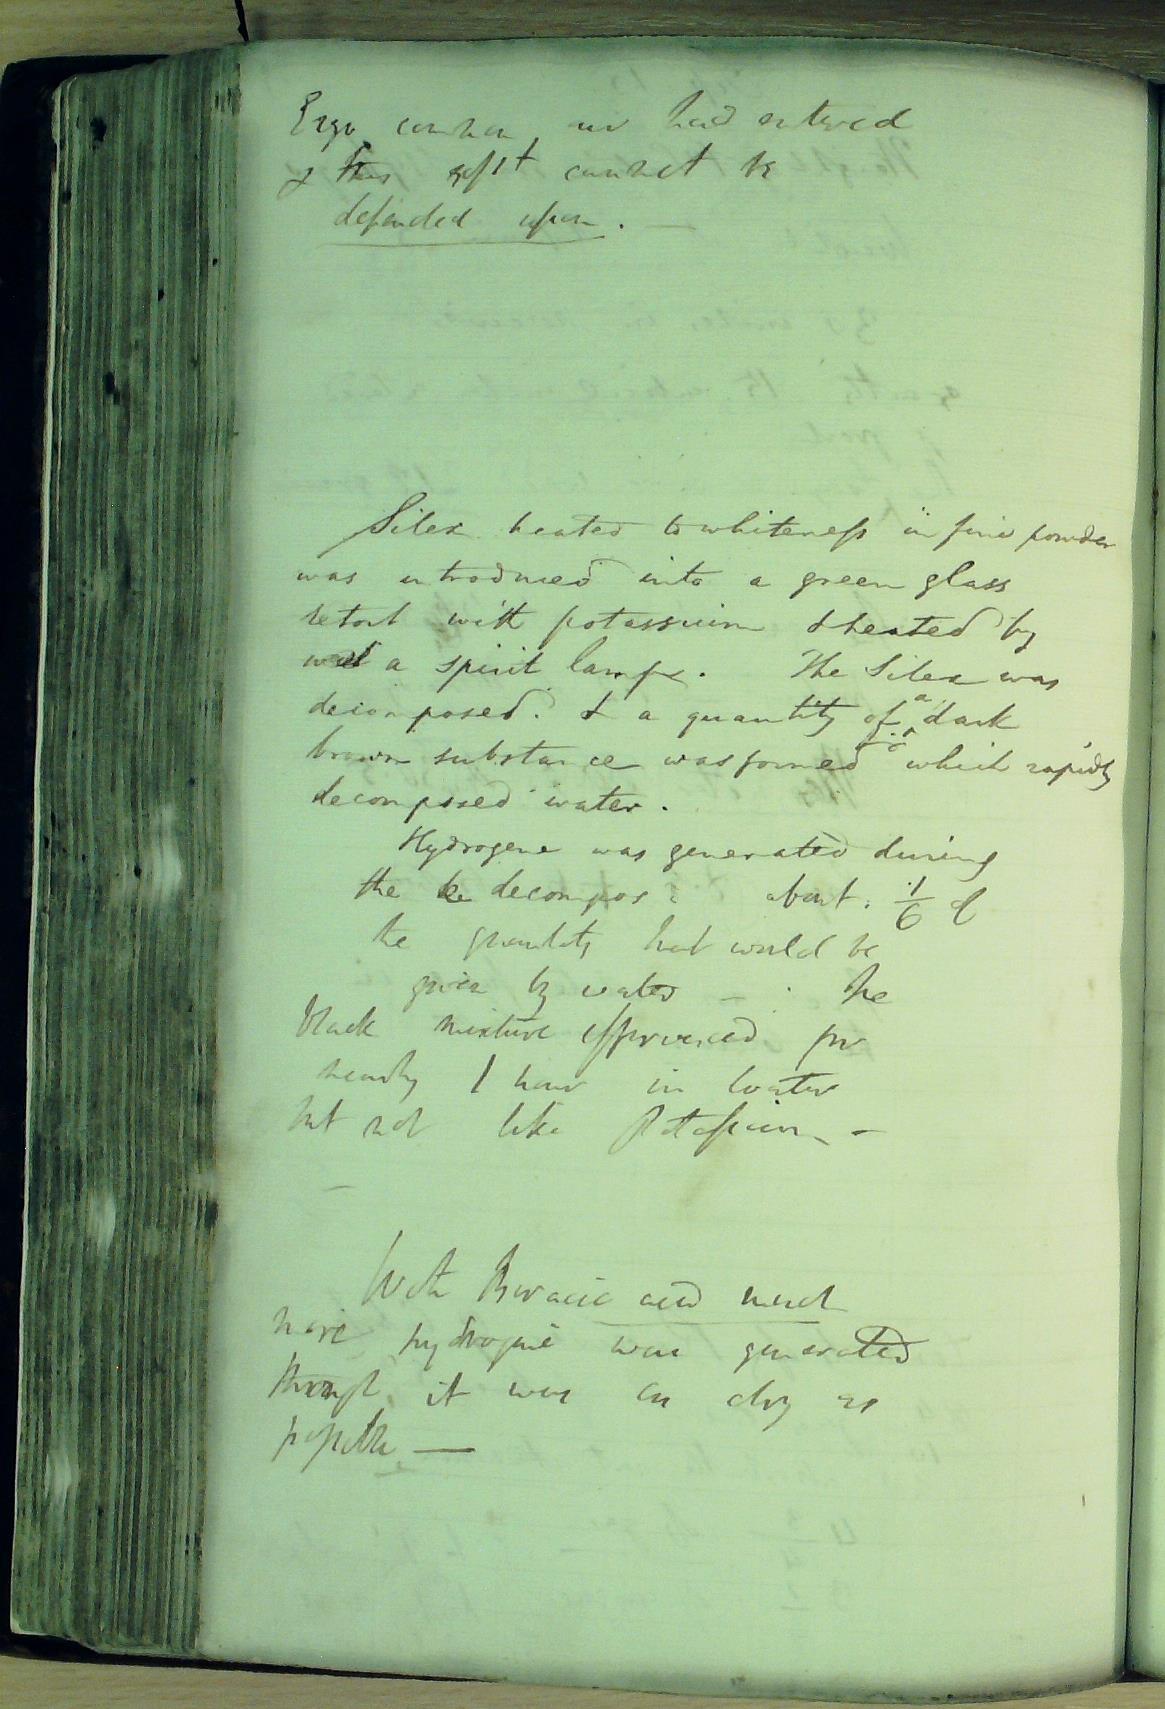 Ergo common air had entered
& this expt cannot be
depended upon.
Silex heated to whiteness in fine powder
was introduced into a green glass
retort with potassium & heated by
a spirit lamp. The Silex was
decomposed. & a quantity of a dark
brown substance was formed which rapidly
decomposed water.
Hydrogene was generated during
the decompos: about 1/6 of
the quantity that would be
given by water - . The
black mixture effervesced for
nearly 1 hour in water
but not like Potassium -
-
With Boracic acid much
more hydrogene was generated
though it was as dry as
possible —